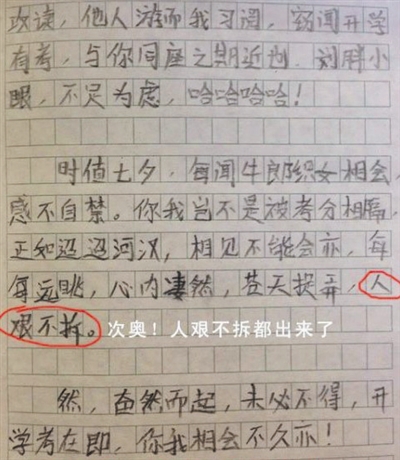 改读，他人游而我习阅，窃闻开学
有考，与你同座之期近也。刘胖小
眼，不足为虑，哈哈哈哈！
时值七夕，每闻牛郎织女相会，
感不自禁。你我岂不是被考分相隔，
正如迢迢河汉，相见不能会亦，每
每远眺，心内凄然，苍天捉弄，人
艰不拆。次奥！人艰不拆都出来了
然，奋然而起，未必不得，开
学考在即，你我相会不久亦！